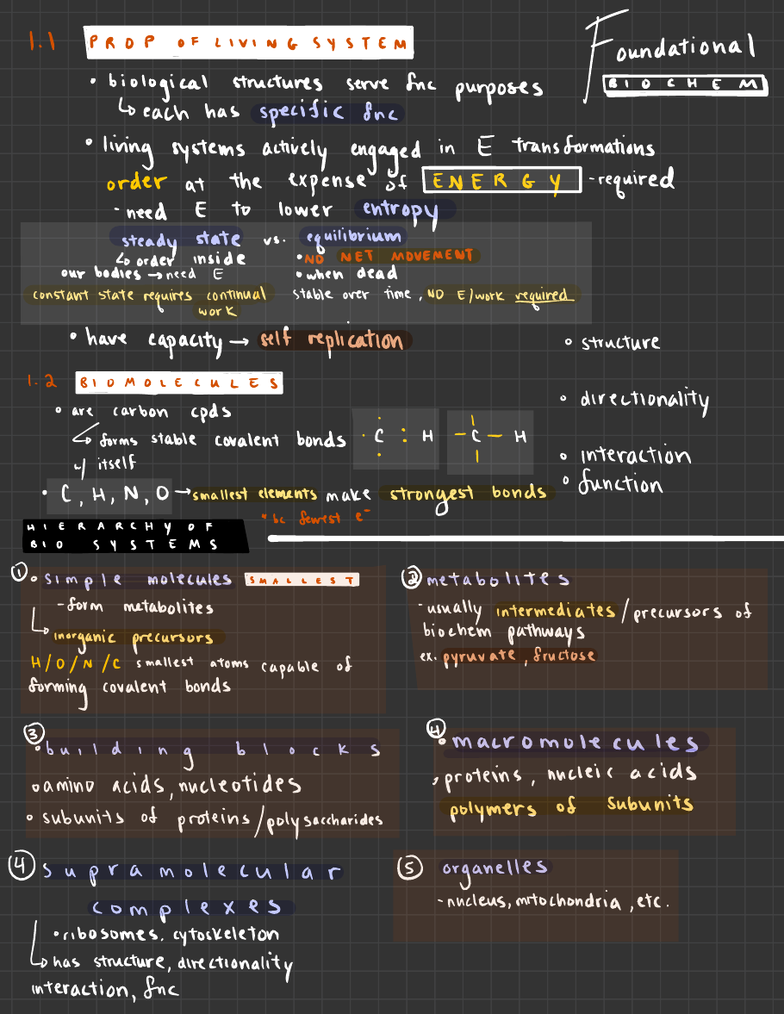 Foundational
BIOCHEM
1.1 PROP OF LIVING SYSTEM
• biological structures serve fnc purposes
↳ each has specific fnc
• living systems actively engaged in E transformations
order at the expense of ENERGY -required
-need E to lower entropy
steady state vs. equilibrium
↳ order inside
our bodies → need E
constant state requires continual
work
• NO NET MOVEMENT
• when dead
stable over time, NO E/work required
• have capacity → self replication
• structure
• directionality
• interaction
• function
1.2 BIOMOLECULES
• are carbon cpds
↳ forms stable covalent bonds
w/ itself
· C : H
- C - H
• C, H, N, O → smallest elements make strongest bonds
* bc fewest e⁻
HIERARCHY OF
BIO SYSTEMS
① • simple molecules SMALLEST
- form metabolites
↳ inorganic precursors
H/O/N/C smallest atoms capable of
forming covalent bonds
② metabolites
- usually intermediates/precursors of
biochem pathways
ex. pyruvate, fructose
③ • building blocks
• amino acids, nucleotides
• subunits of proteins/polysaccharides
④ • macromolecules
• proteins, nucleic acids
polymers of subunits
④ supramolecular
complexes
• ribosomes, cytoskeleton
↳ has structure, directionality
interaction, fnc
⑤ organelles
- nucleus, mitochondria, etc.